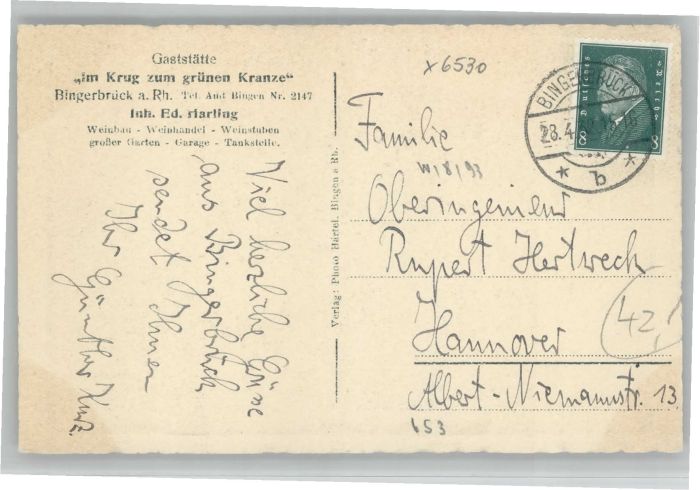 Gaststätte
„Im Krug zum grünen Kranze“
Bingerbrück a. Rh. Tel. Amt Bingen Nr. 2147
Inh. Ed. Harling
Weinbau - Weinhandel - Weinstuben
großer Garten - Garage - Tankstelle.
Viel herzliche Grüße
aus Bingerbrück
sendet Ihnen
Ihr Günther Kurz.
Verlag: Photo Härtel, Bingen a Rh.
x6530
BINGERBRÜCK
28.4
* b *
Deutsches Reich
8 8
Familie
W/8/93
Oberingenieur
Rupert Hertweck
Hannover
42,
Albert-Niemannstr. 13.
653